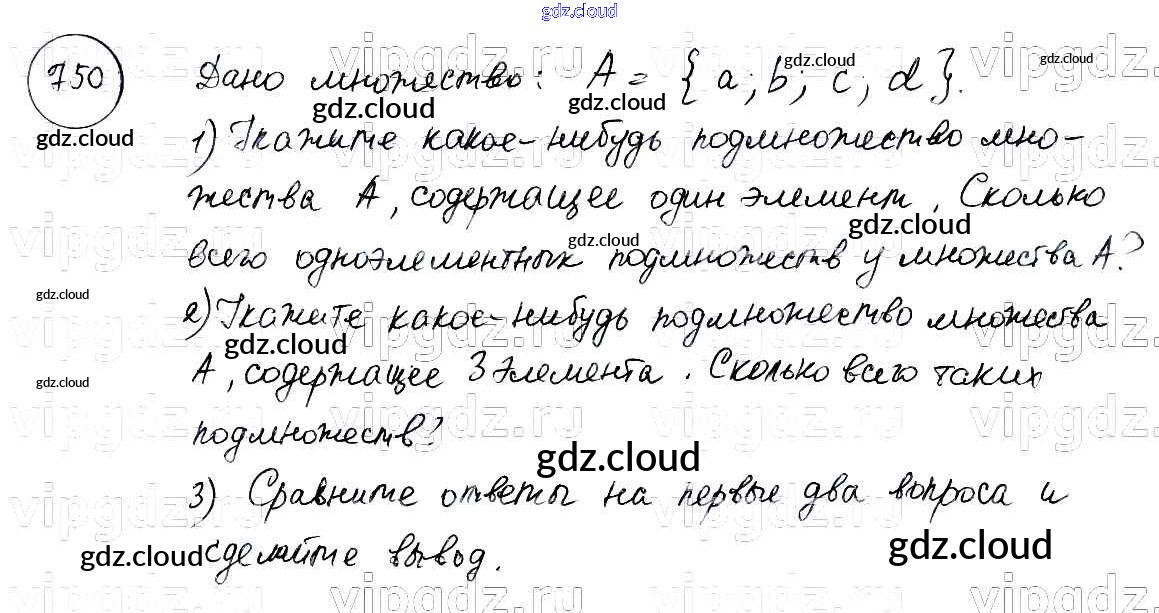 gdz.cloud
750 Дано множество: A = {a; b; c; d}.
gdz.cloud gdz.cloud gdz.cloud gdz.cloud gdz.cloud
1) Укажите какое-нибудь подмножество мно-
жества A, содержащее один элемент. Сколько
gdz.cloud gdz.cloud
всего одноэлементных подмножеств у множества A?
gdz.cloud
2) Укажите какое-нибудь подмножество множества
gdz.cloud
A, содержащее 3 элемента. Сколько всего таких
gdz.cloud
подмножеств?
gdz.cloud
3) Сравните ответы на первые два вопроса и
сделайте вывод.
gdz.cloud gdz.cloud
vipgdz.ru vipgdz.ru vipgdz.ru vipgdz.ru